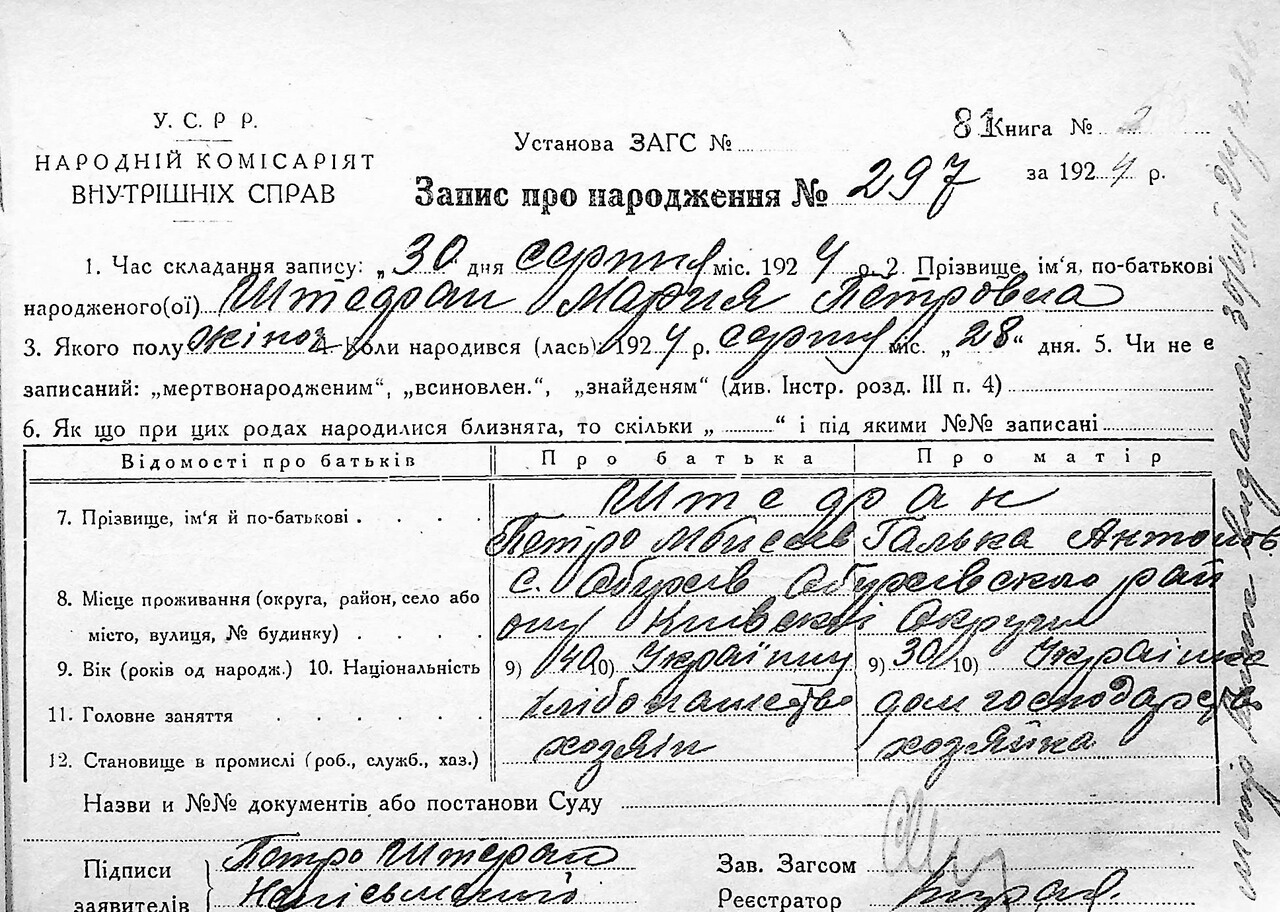 У. С. Р Р.
НАРОДНІЙ КОМІСАРІЯТ
ВНУТРІШНІХ СПРАВ
Установа ЗАГС №
81 Книга № 2
за 1924 р.
Запис про народження № 297
1. Час складання запису: „30 дня серпня міс. 1924 р. 2. Прізвище, ім'я, по-батькові
народженого(ої) Штефан Мария Петровна
3. Якого полу жіноч 4. Коли народився (лась) 1924 р. серпня міс. „28“ дня. 5. Чи не є
записаний: „мертвонародженим“, „всиновлен.“, „знайденям“ (див. Інстр. розд. III п. 4)
6. Як що при цих родах народилися близняга, то скільки „ “ і під якими №№ записані
Відомості про батьків Про батька Про матір
7. Прізвище, ім'я й по-батькові Штефан
Петро Мойсеев Галька Антонов
8. Місце проживання (округа, район, село або с. Обухів Обухівского рай
місто, вулиця, № будинку) ону Київскої Округи
9. Вік (років од народж.) 10. Національність 9) 40 10) Українец 9) 30 10) Українка
11. Головне заняття хлібопашество дом господарств
12. Становище в промислі (роб., служб., хаз.) хозяін хозяйка
Назви и №№ документів або постанови Суду
Підписи Петро Штефан
заявителів
Зав. Загсом
Реєстратор